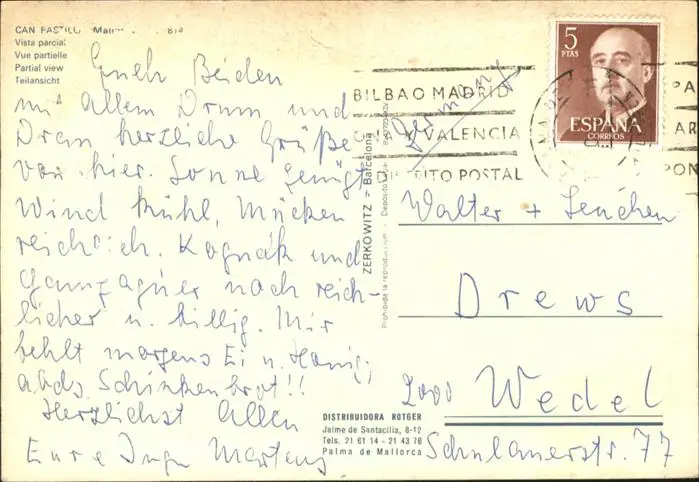 CAN PASTILLA
Vista parcial
Vue partielle
Partial view
Teilansicht
Euch Beiden
mit allem Drum und
Dran herzliche Grüße
von hier. Sonne genügt
Wind kühl, Mücken
reichlich. Kognak und
noch reich-
licher u. billig. Mir
fehlt morgens Ei u. Honig,
abds. Schinkenbrot!!
Herzlichst Allen
Eure Inge Martens
ZERKOWITZ - Barcelona
Prohibida la reproducción - Depósito
DISTRIBUIDORA ROTGER
Jaime de Santacilia, 8-12
Tels. 21 61 14 - 21 43 76
Palma de Mallorca
BILBAO MADRID
VALENCIA
DISTRITO POSTAL
5
PTAS
ESPAÑA
CORREOS
PA
AR
PON
Germany
Walter + Lenchen
Drews
2000 Wedel
Schulauerstr. 77